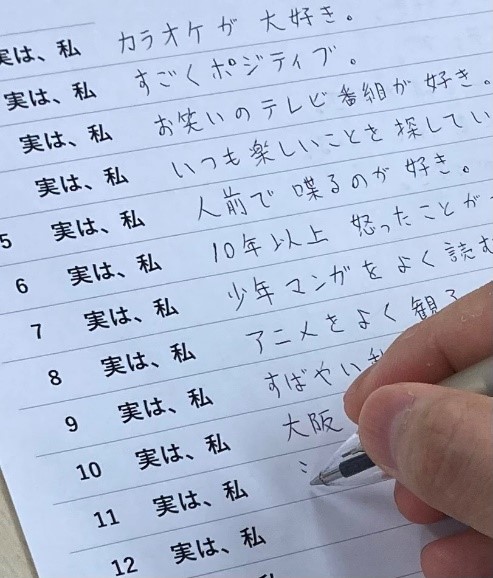 実は、私 カラオケが大好き。
実は、私 すごくポジティブ。
実は、私 お笑いのテレビ番組が好き。
実は、私 いつも楽しいことを探してい
5 実は、私 人前で喋るのが好き。
6 実は、私 10年以上怒ったことが
7 実は、私 少年マンガをよく読む
8 実は、私 アニメをよく観る
9 実は、私 すばやい
10 実は、私 大阪
11 実は、私
12 実は、私